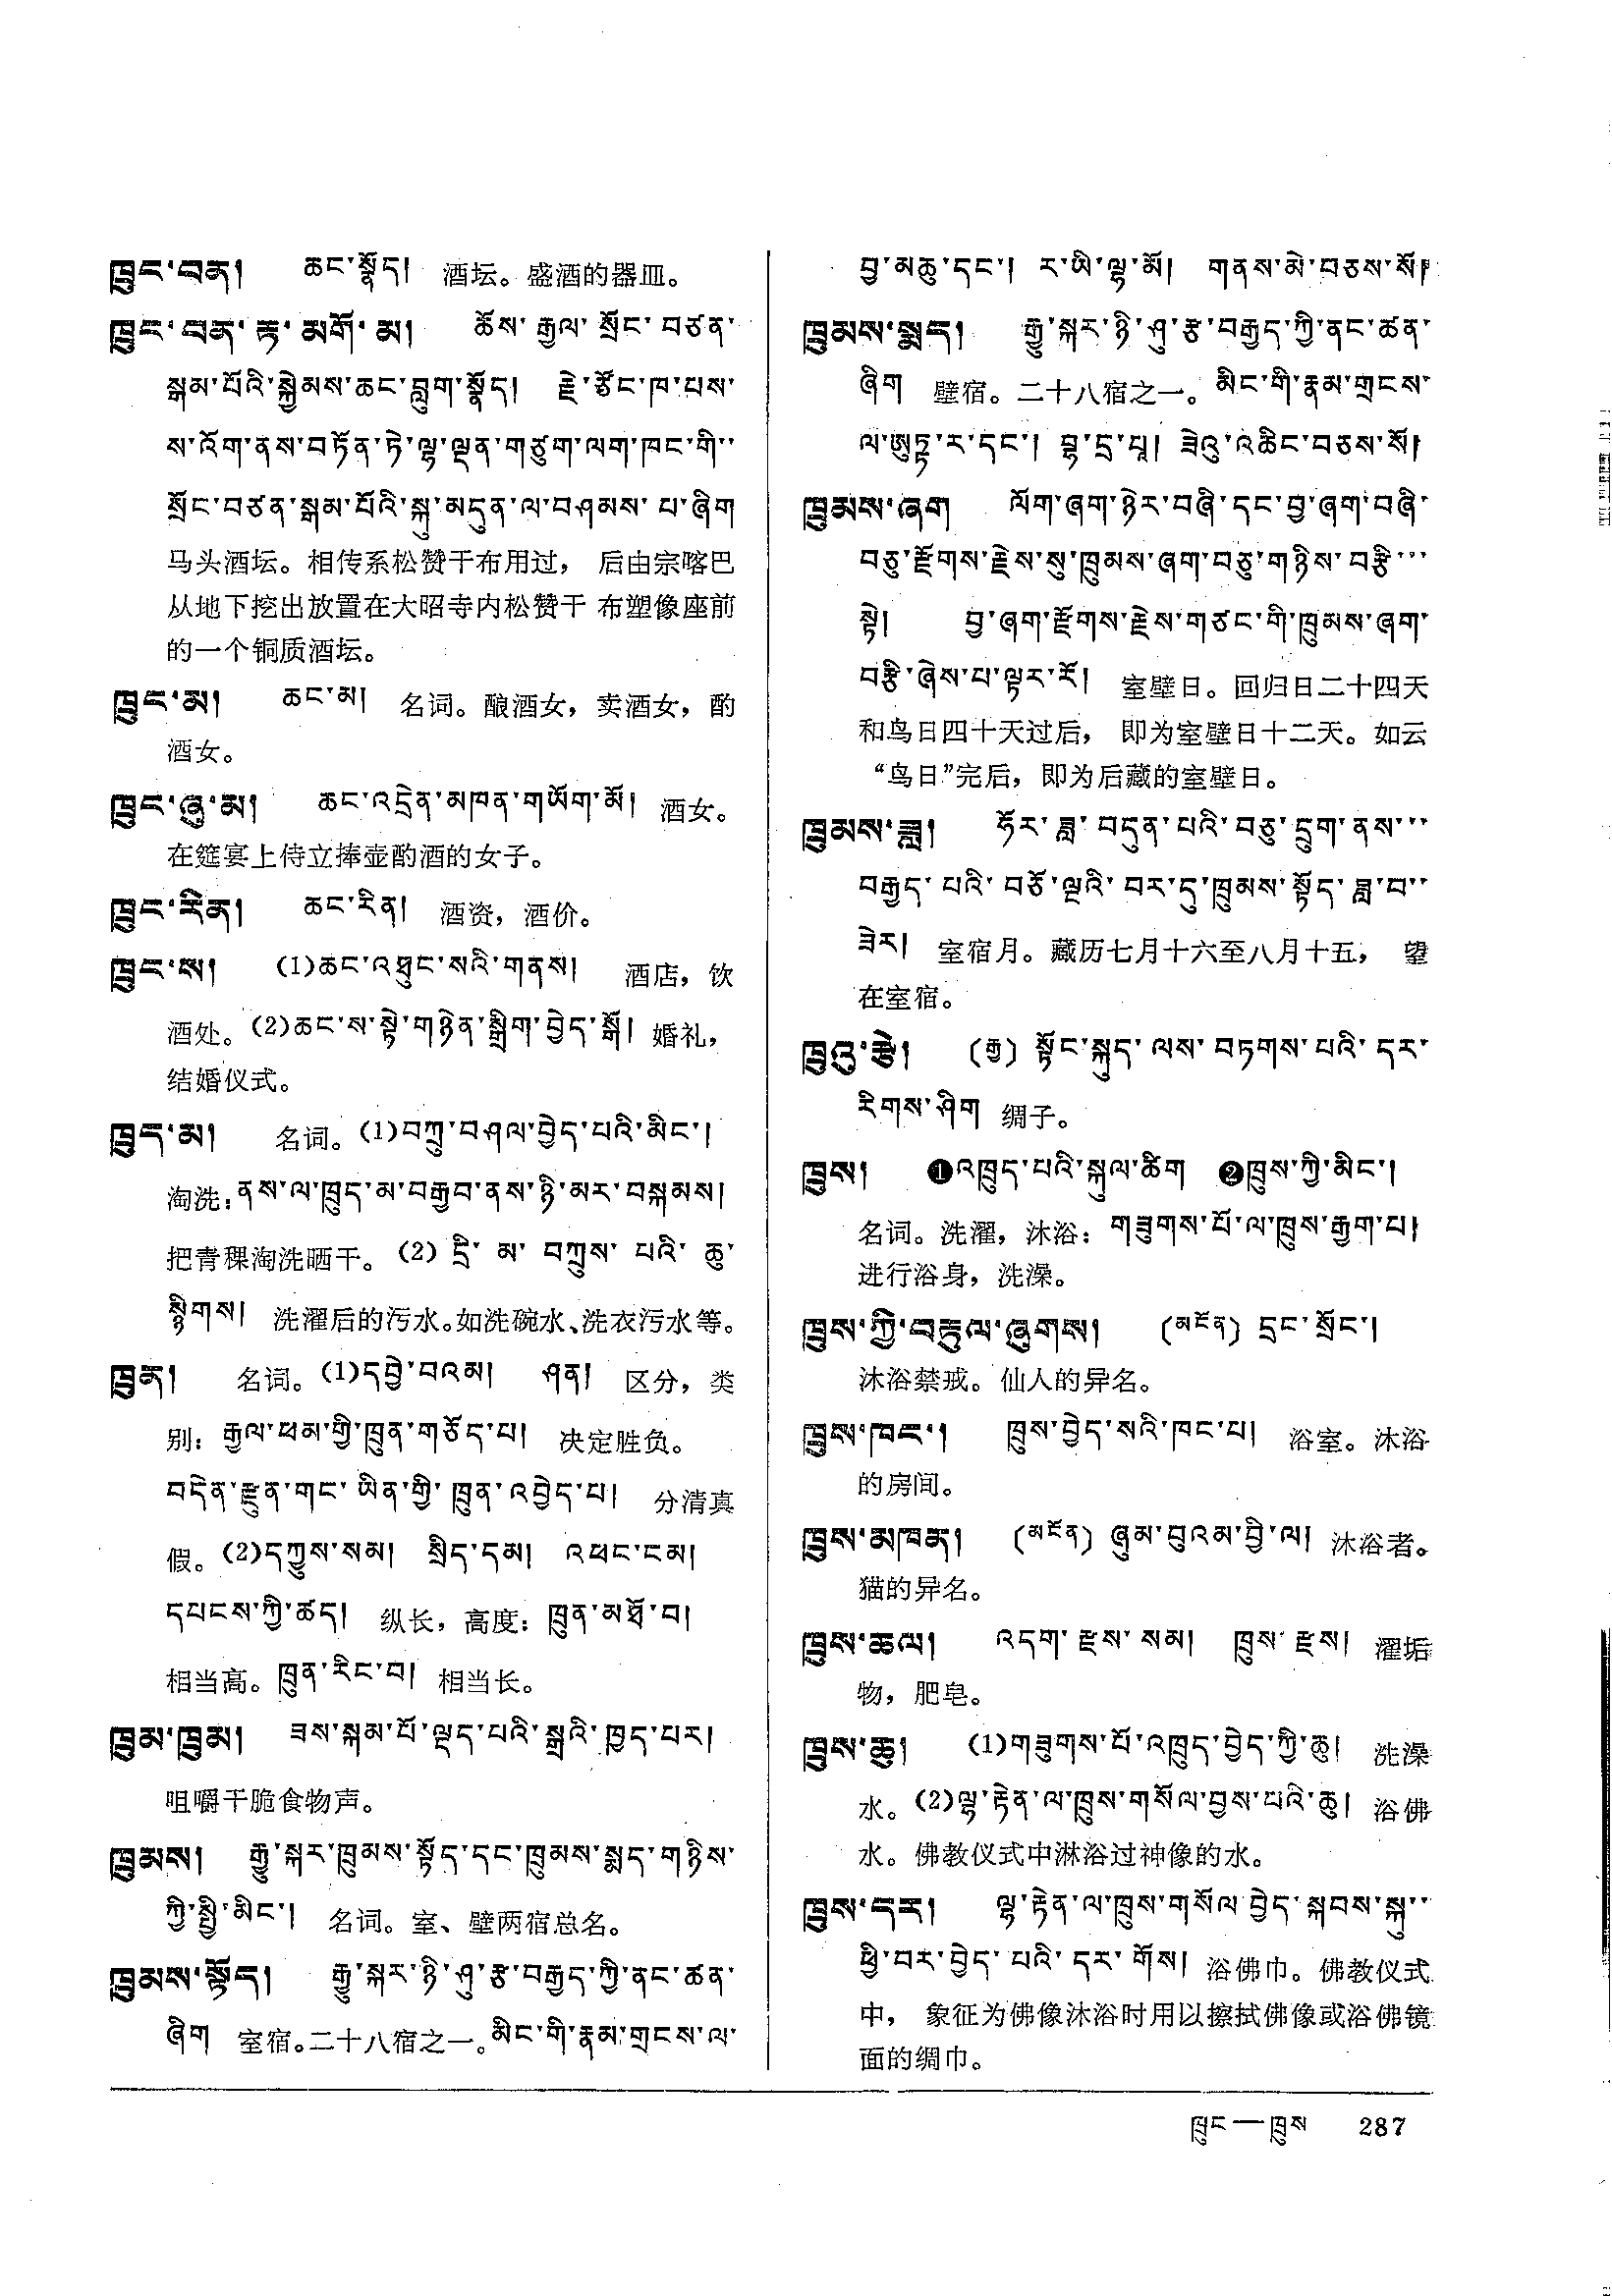 ཁྲུང་བན། ཆང་སྣོད། 酒坛。盛酒的器皿。
ཁྲུང་བན་རྟ་མགོ་མ། ཆོས་རྒྱལ་སྲོང་བཙན་
སྒམ་པོའི་སྐྱེམས་ཆང་བླུག་སྣོད། རྗེ་ཙོང་ཁ་པས་
ས་འོག་ནས་བཏོན་ཏེ་ལྷ་ལྡན་གཙུག་ལག་ཁང་གི་
སྲོང་བཙན་སྒམ་པོའི་སྐུ་མདུན་ལ་བཤམས་པ་ཞིག
马头酒坛。相传系松赞干布用过，后由宗喀巴
从地下挖出放置在大昭寺内松赞干布塑像座前
的一个铜质酒坛。
ཁྲུང་མ། ཆང་མ། 名词。酿酒女，卖酒女，酌
酒女。
ཁྲུང་ཞུ་མ། ཆང་འདྲེན་མཁན་གཡོག་མོ། 酒女。
在筵宴上侍立捧壶酌酒的女子。
ཁྲུང་རིན། ཆང་རིན། 酒资，酒价。
ཁྲུང་ས། (1)ཆང་འཐུང་སའི་གནས། 酒店，饮
酒处。(2)ཆང་ས་སྟེ་གཉེན་སྒྲིག་བྱེད་སྒོ། 婚礼，
结婚仪式。
ཁྲུད་མ། 名词。(1)བཀྲུ་བཤལ་བྱེད་པའི་མིང་།
淘洗：ནས་ལ་ཁྲུད་མ་བརྒྱབ་ནས་ཉི་མར་བསྐམས།
把青稞淘洗晒干。(2) དྲི་མ་བཀྲུས་པའི་ཆུ་
སྙིགས། 洗濯后的污水。如洗碗水、洗衣污水等。
ཁྲུན། 名词。(1)དབྱེ་བའམ། ཤན། 区分，类
别：རྒྱལ་ཕམ་གྱི་ཁྲུན་གཅོད་པ། 决定胜负。
བདེན་རྫུན་གང་ཡིན་གྱི་ཁྲུན་འབྱེད་པ། 分清真
假。(2)དཀྱུས་སམ། སྲིད་དམ། འཕང་ངམ།
དཔངས་ཀྱི་ཚད། 纵长，高度：ཁྲུན་མཐོ་བ།
相当高。ཁྲུན་རིང་བ། 相当长。
ཁྲུམ་ཁྲུམ། ཟས་སྐམ་པོ་ལྡད་པའི་སྒྲའི་ཁྱད་པར།
咀嚼干脆食物声。
ཁྲུམས། རྒྱུ་སྐར་ཁྲུམས་སྟོད་དང་ཁྲུམས་སྨད་གཉིས་
ཀྱི་སྤྱི་མིང་། 名词。室、壁两宿总名。
ཁྲུམས་སྟོད། རྒྱུ་སྐར་ཉི་ཤུ་རྩ་བརྒྱད་ཀྱི་ནང་ཚན་
ཞིག 室宿。二十八宿之一。མིང་གི་རྣམ་གྲངས་ལ་
བྱ་མཆུ་དང་། ར་ཡི་ལྷ་མོ། གནས་མེ་བཅས་སོ།
ཁྲུམས་སྨད། རྒྱུ་སྐར་ཉི་ཤུ་རྩ་བརྒྱད་ཀྱི་ནང་ཚན་
ཞིག 壁宿。二十八宿之一。མིང་གི་རྣམ་གྲངས་
ལ་ཨུཏྟ་ར་དང་། བྷ་དྲ་པཱ། ཟེའུ་འཆིང་བཅས་སོ།
ཁྲུམས་ཞག ལོག་ཞག་ཉེར་བཞི་དང་བྱ་ཞག་བཞི་
བཅུ་རྫོགས་རྗེས་སུ་ཁྲུམས་ཞག་བཅུ་གཉིས་བརྩི་
སྟེ། བྱ་ཞག་རྫོགས་རྗེས་གཙང་གི་ཁྲུམས་ཞག་
བརྩི་ཞེས་པ་ལྟར་རོ། 室壁日。回归日二十四天
和鸟日四十天过后，即为室壁日十二天。如云
“鸟日”完后，即为后藏的室壁日。
ཁྲུམས་ཟླ། ཧོར་ཟླ་བདུན་པའི་བཅུ་དྲུག་ནས་
བརྒྱད་པའི་བཅོ་ལྔའི་བར་དུ་ཁྲུམས་སྟོད་ཟླ་བ་
ཟེར། 室宿月。藏历七月十六至八月十五，望
在室宿。
ཁྲུའུ་རྩེ། (རྒྱ) སྟོང་སྐུད་ལས་བཏགས་པའི་དར་
རིགས་ཤིག 绸子。
ཁྲུས། ❶འཁྲུད་པའི་སྐུལ་ཚིག ❷ཁྲུས་ཀྱི་མིང་།
名词。洗濯，沐浴：གཟུགས་པོ་ལ་ཁྲུས་རྒྱག་པ།
进行浴身，洗澡。
ཁྲུས་ཀྱི་བརྟུལ་ཞུགས། (མངོན) དྲང་སྲོང་།
沐浴禁戒。仙人的异名。
ཁྲུས་ཁང་། ཁྲུས་བྱེད་སའི་ཁང་པ། 浴室。沐浴
的房间。
ཁྲུས་མཁན། (མངོན) ཞུམ་བུའམ་བྱི་ལ། 沐浴者。
猫的异名。
ཁྲུས་ཆལ། འདག་རྫས་སམ། ཁྲུས་རྫས། 濯垢
物，肥皂。
ཁྲུས་ཆུ། (1)གཟུགས་པོ་འཁྲུད་བྱེད་ཀྱི་ཆུ། 洗澡
水。(2)ལྷ་རྟེན་ལ་ཁྲུས་གསོལ་བྱས་པའི་ཆུ། 浴佛
水。佛教仪式中淋浴过神像的水。
ཁྲུས་དར། ལྷ་རྟེན་ལ་ཁྲུས་གསོལ་བྱེད་སྐབས་སྐུ་
ཕྱི་བར་བྱེད་པའི་དར་གོས། 浴佛巾。佛教仪式
中，象征为佛像沐浴时用以擦拭佛像或浴佛镜
面的绸巾。
ཁྲུང—ཁྲུས 287